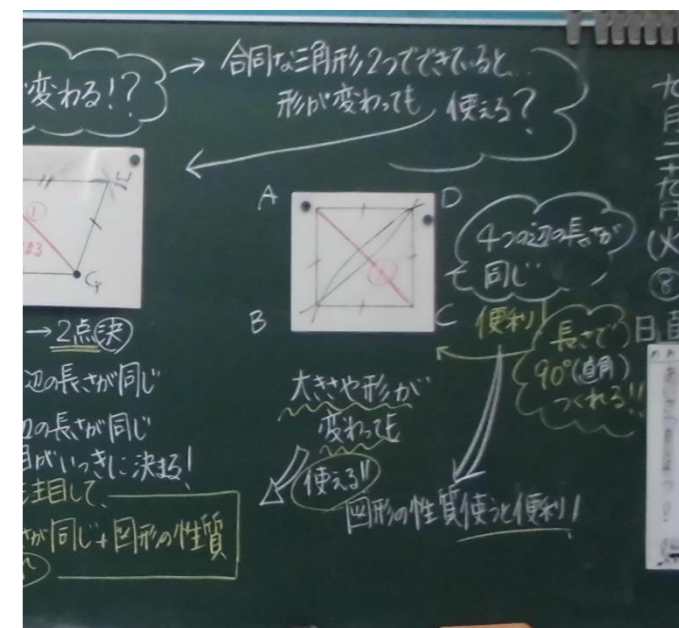 変わる!?
→ 合同な三角形2つでできていると…
形が変わっても 使える?
①
G
A
D
B
C
4つの辺の長さが
同じ
便利
長さで
90°(直角)
つくれる!!
→2点決
辺の長さが同じ
の長さが同じ
がいっきに決まる!
注目して、
が同じ+図形の性質
大きさや形が
変わっても
使える!!
図形の性質使うと便利!
九月二十九日(火)
⑧
日直